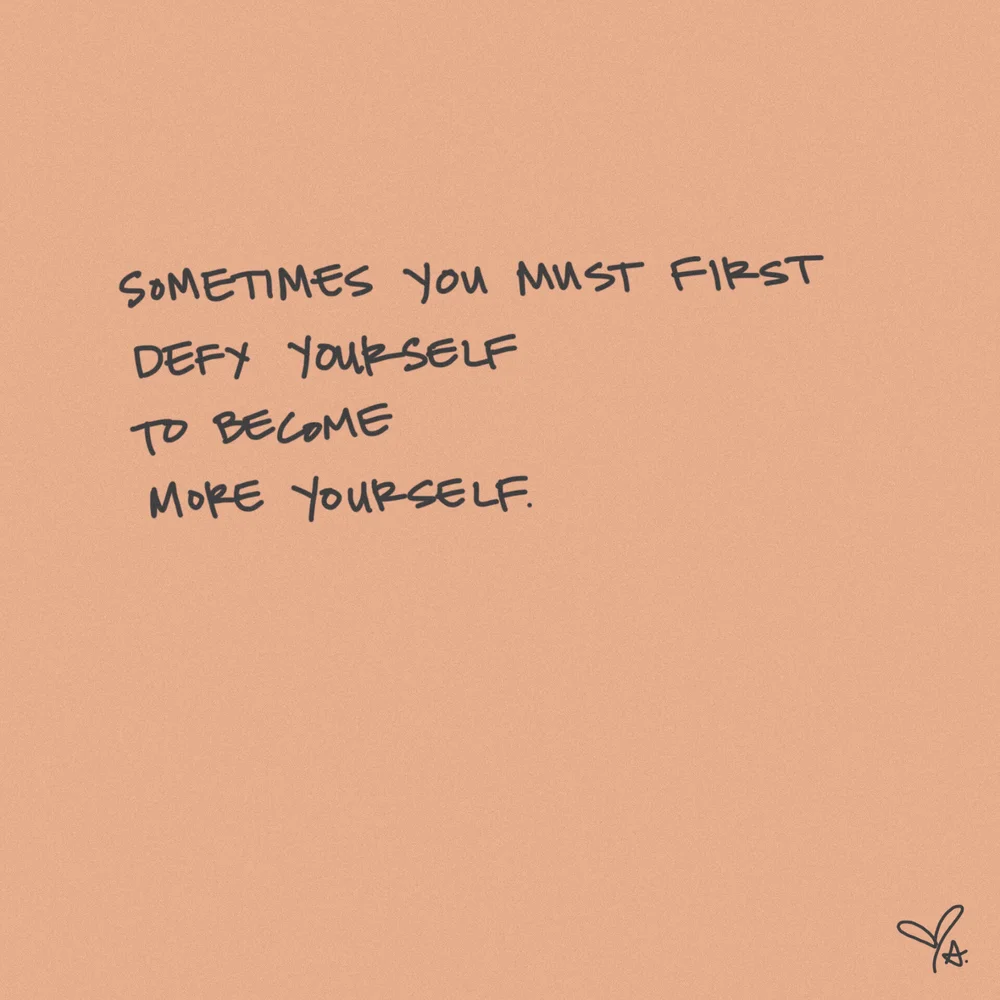 SOMETIMES YOU MUST FIRST
DEFY YOURSELF
TO BECOME
MORE YOURSELF.
A.